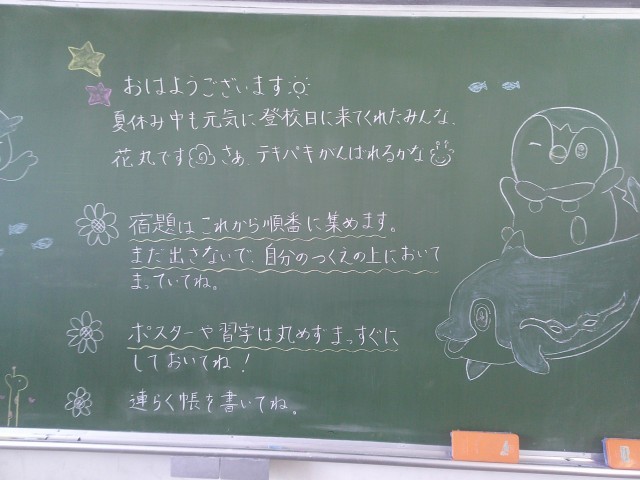 おはようございます
夏休み中も元気に登校日に来てくれたみんな、
花丸です さぁ、テキパキがんばれるかな
宿題はこれから順番に集めます。
まだ出さないで、自分のつくえの上においで
まっていてね。
ポスターや習字は丸めずまっすぐに
しておいてね！
連らく帳を書いてね。